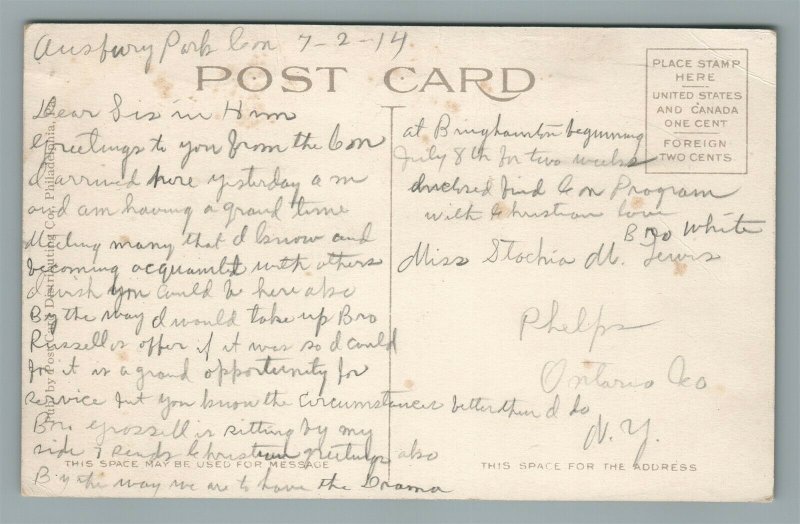 Ausbury Park Con 7-2-14
POST CARD
PLACE STAMP
HERE
UNITED STATES
AND CANADA
ONE CENT
FOREIGN
TWO CENTS
Dear Sis in Him
Greetings to you from the Con
I arrived here yesterday a m
and am having a grand time
Meeting many that I know and
becoming acquainted with others
I wish you could be here also
By the way I would take up Bro
Russells offer if it was so I could
for it is a grand opportunity for
service but you know the circumstances better than I do
Bro Grossell is sitting by my
side & sends Christian greetings also
By the way we are to have the Drama
at Binghamton beginning
July 8th for two weeks
Inclosed find Con Program
with Christian love
Bro White
Miss Stochia M. Lewis
Phelps
Ontario Co
N.Y.
Pub. by Post Card Distributing Co., Philadelphia, Pa.
THIS SPACE MAY BE USED FOR MESSAGE
THIS SPACE FOR THE ADDRESS